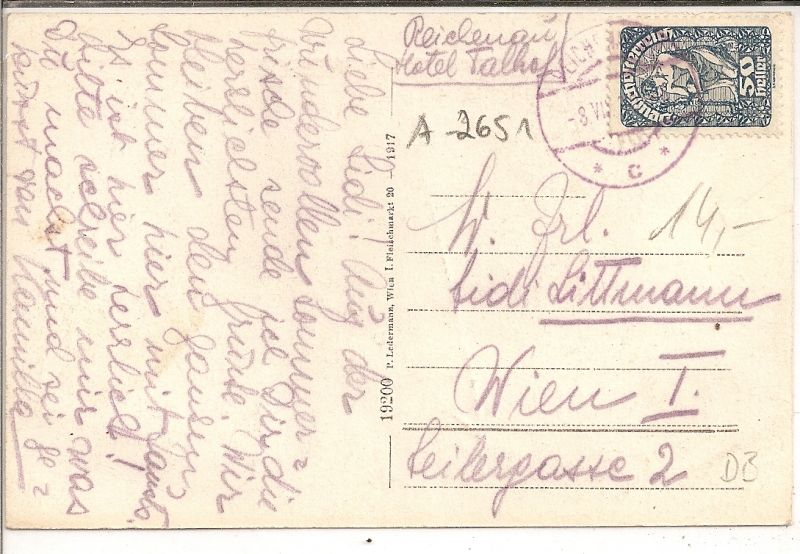 Liebe Lidi! Aus der
wundervollen Sommer=
frische sende ich Dir die
herzlichsten Grüße. Wir
bleiben den ganzen
Sommer hier mit
Es ist hier herrlich!
Bitte schreibe mir was
Du machst und sei ge=
küsst von Kamilla
Reichenau
Hotel Talhof
A-2651
Deutschösterreich
50
Heller
-8.VII
* C *
19200 P. Ledermann, Wien I. Fleischmarkt 20 1917
W. Frl.
14,-
Lidi Littmann
Wien I.
Seilergasse 2
DB